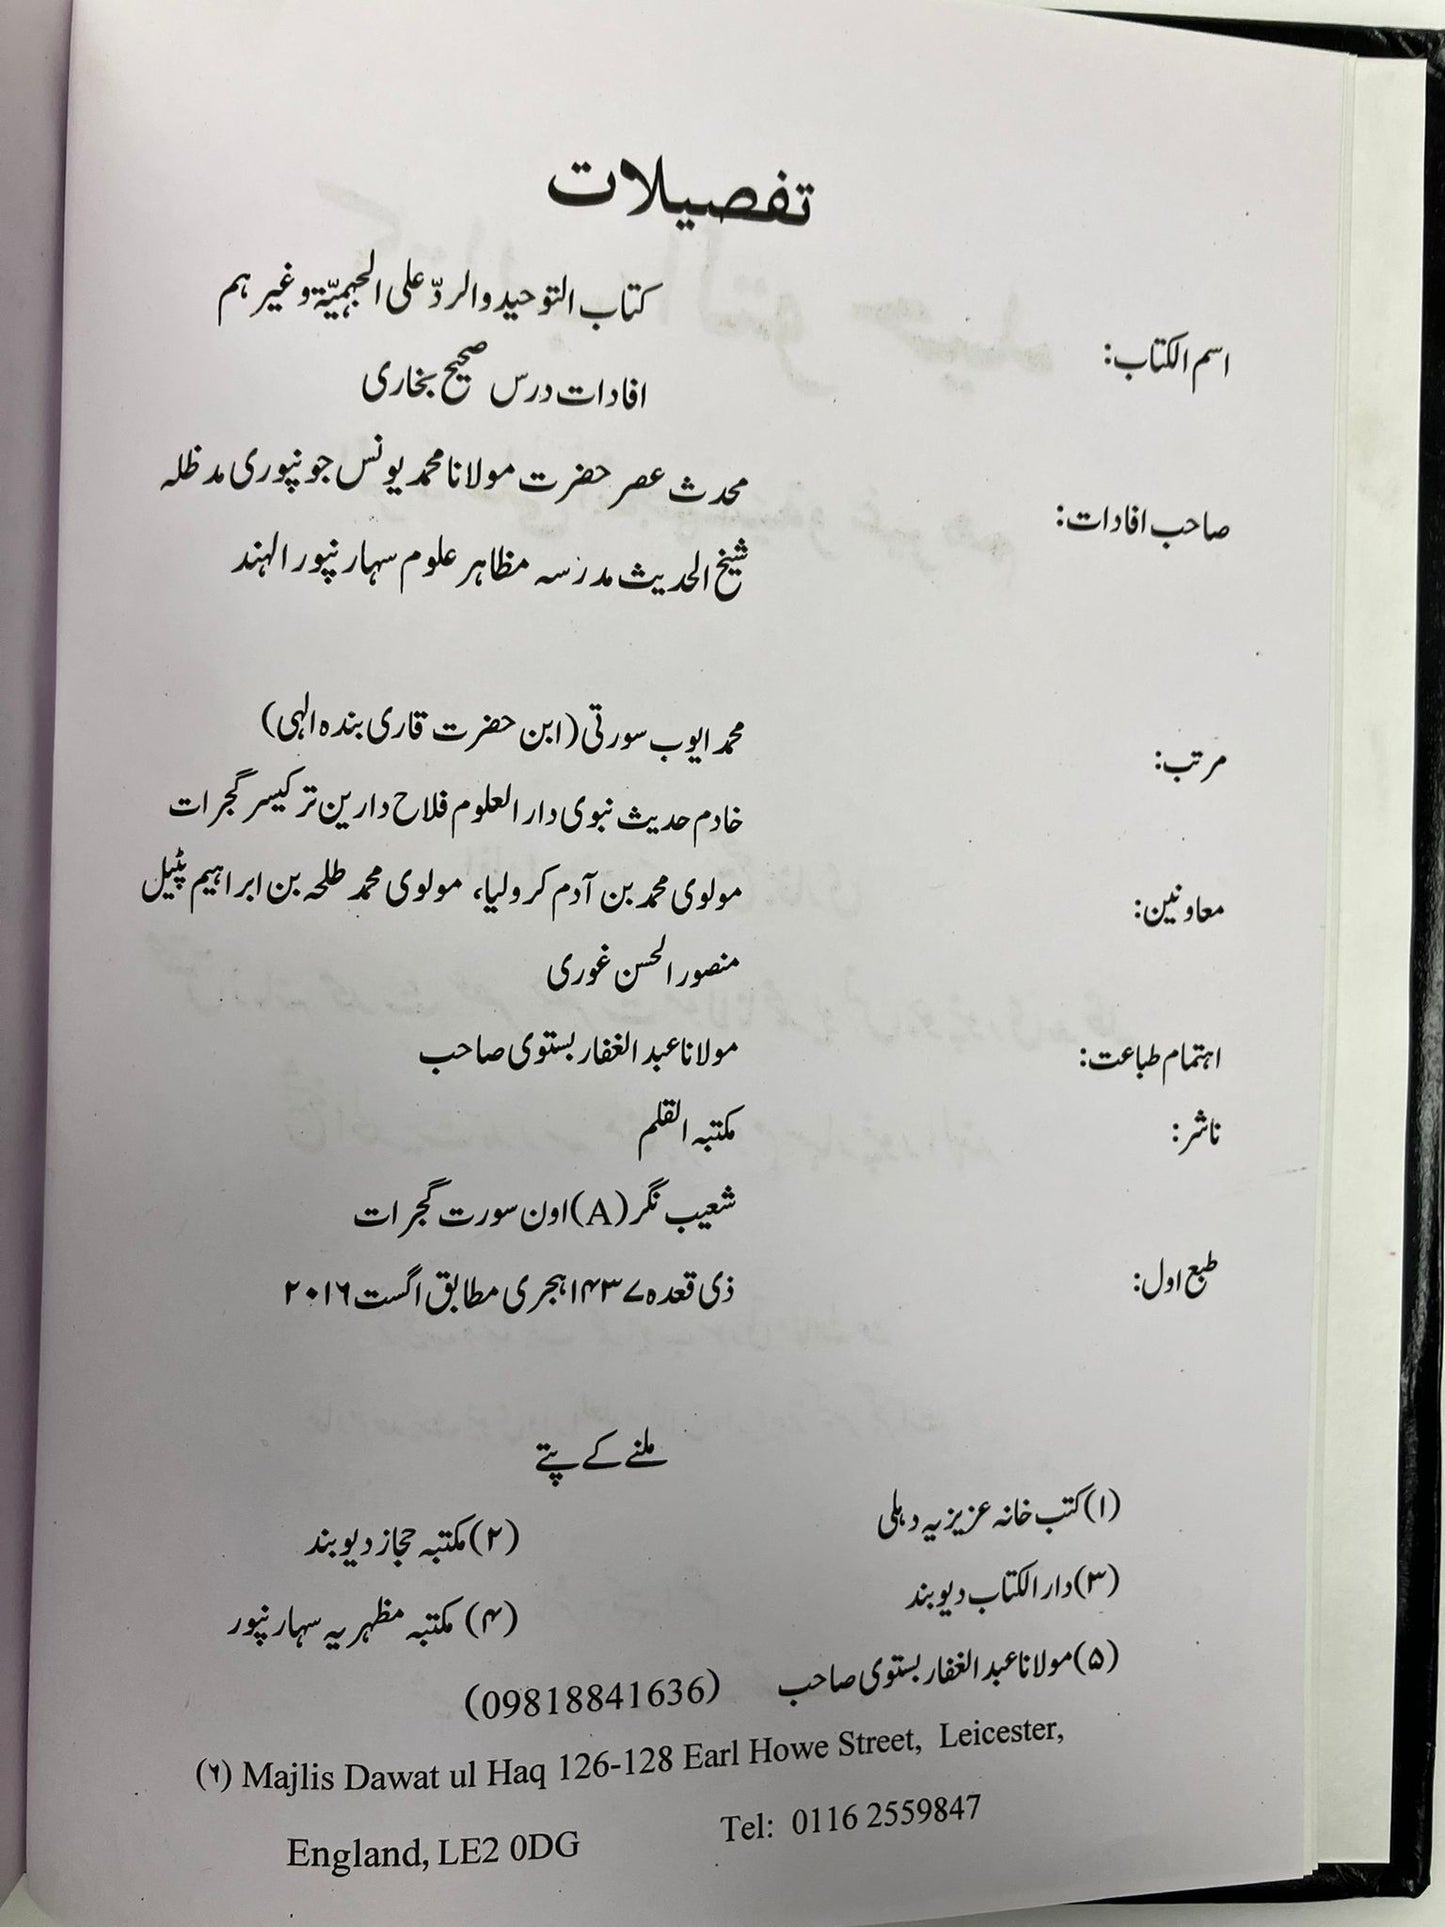 تفصیلات
اسم الکتاب: کتاب التوحید والردّ علی الجہمیّۃ وغیرہم
افادات درس صحیح بخاری
صاحب افادات: محدث عصر حضرت مولانا محمد یونس جونپوری مدظلہ
شیخ الحدیث مدرسہ مظاہر علوم سہارنپور الہند
مرتب: محمد ایوب سورتی (ابن حضرت قاری بندہ الٰہی)
خادم حدیث نبوی دار العلوم فلاح دارین ترکیسر گجرات
معاونین: مولوی محمد بن آدم کرولیا، مولوی محمد طلحہ بن ابراہیم پٹیل
منصور الحسن غوری
اہتمام طباعت: مولانا عبد الغفار بستوی صاحب
ناشر: مکتبہ القلم
شعیب نگر (A) اون سورت گجرات
طبع اول: ذی قعدہ ۱۴۳۷ ہجری مطابق اگست ۲۰۱۶
ملنے کے پتے
(۱) کتب خانہ عزیزیہ دہلی (۲) مکتبہ حجاز دیوبند
(۳) دار الکتاب دیوبند (۴) مکتبہ مظہریہ سہارنپور
(۵) مولانا عبد الغفار بستوی صاحب (09818841636)
(۶) Majlis Dawat ul Haq 126-128 Earl Howe Street, Leicester,
England, LE2 0DG Tel: 0116 2559847